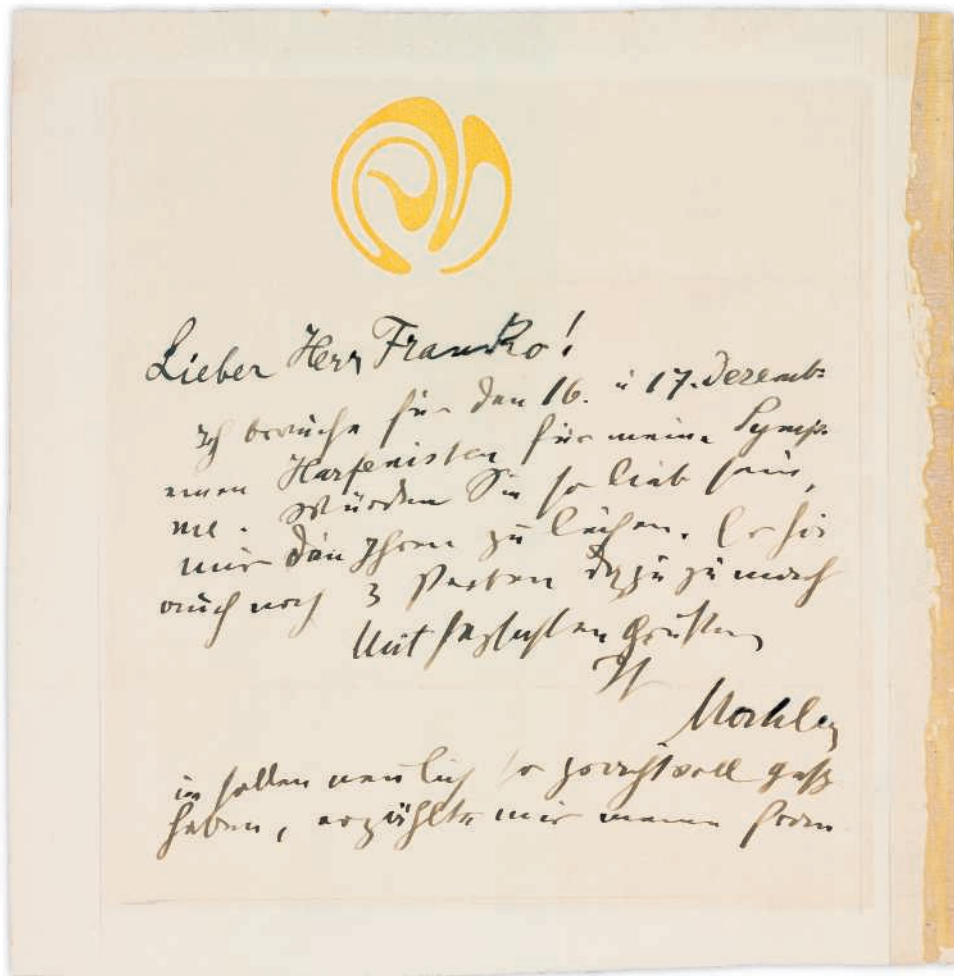 Lieber Herr Franko!
Ich brauche für den 16. u 17. Dezemb.
einen Harfenisten für meine Symp
nie. Würden Sie so lieb sein,
mir den Ihren zu leihen. Er hä
auch noch 3 Proben dazu zu mach
Mit herzlichsten Grüßen
Ihr
Mahler
ie sollen neulich so prachtvoll gesp
haben, erzählte mir meine Frau